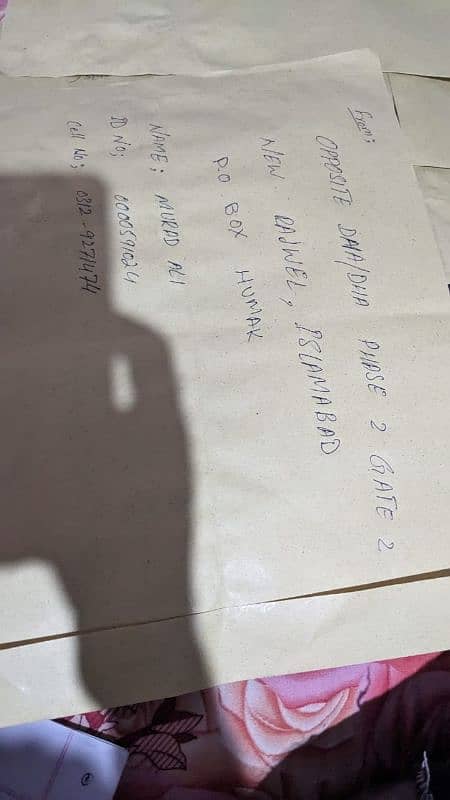 From:
OPPOSITE DAA/DHA PHASE 2 GATE 2
NEW RAJWEL, ISLAMABAD
P.O BOX HUMAK
NAME: MURAD ALI
ID NO; 0000591024
Cell No; 0312-9271474